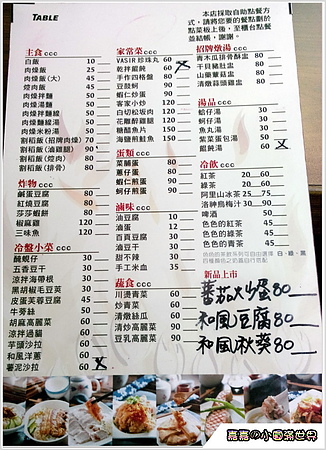 TABLE
本店採取自助點餐方
式,請將您要的餐點劃於
點菜板上後,至櫃台點餐
並結帳,謝謝。
主食 ccc
白飯 10
肉燥飯 25
肉燥飯(大) 45
焢肉飯 60
肉燥拌麵 50
肉燥湯麵 50
肉燥拌麵線 50
肉燥麵線湯 50
肉燥米粉湯 50
割稻飯(招牌肉燥) 70
割稻飯(滷雞腿) 90
割稻飯(焢肉) 80
割稻飯(排骨) 80
炸物 ccc
鹹蛋豆腐 80
紅燒豆腐 80
莎莎蝦餅 80
椒麻雞 120
三味魚 120
冷盤小菜 ccc
醃蜆仔 60
五香豆干 30
涼拌海帶根 30
黑胡椒毛豆莢 30
皮蛋芙蓉豆腐 45
牛蒡絲 50
胡麻高麗菜 50
涼拌過貓 60
芋頭沙拉 60
和風洋蔥 60
薯泥沙拉 60
家常菜 ccc
VASIR珍珠丸 60
乾拌餛飩 60
手作四格盤 80
豆鼓蚵 80
蝦仁炒蛋 80
客家小炒 120
白切松坂肉 120
花雕醉雞腿 120
糖醋魚片 150
海鹽煎鮭魚 150
蛋類 ccc
菜脯蛋 80
蔥仔蛋 80
蝦仁煎蛋 80
蚵仔煎蛋 80
滷味 ccc
油豆腐 50
滷蛋 10
百頁豆腐 30
滷豆干 30
甜不辣 30
手工米血 35
蔬食 ccc
川燙青菜 60
炒青菜 60
清燉絲瓜 60
清炒高麗菜 90
豆乳高麗菜 90
招牌燉湯 ccc
青木瓜排骨盅 80
干貝豬肚盅 80
山藥蕈菇盅 80
清燉蒜頭雞盅 80
湯品 ccc
蛤仔湯 30
蚵仔湯 30
魚丸湯 30
紫菜蛋包湯 30
餛飩湯 60
冷飲 ccc
紅茶 20
綠茶 20
阿里山冰茶 25
洛神烏梅汁 30
啤酒 50
色色的紅茶 45
色色的綠茶 45
色色的青茶 45
新品上市
蕃茄炒蛋 80
和風豆腐 80
和風秋葵 80
嘉嘉の小圓滿世界